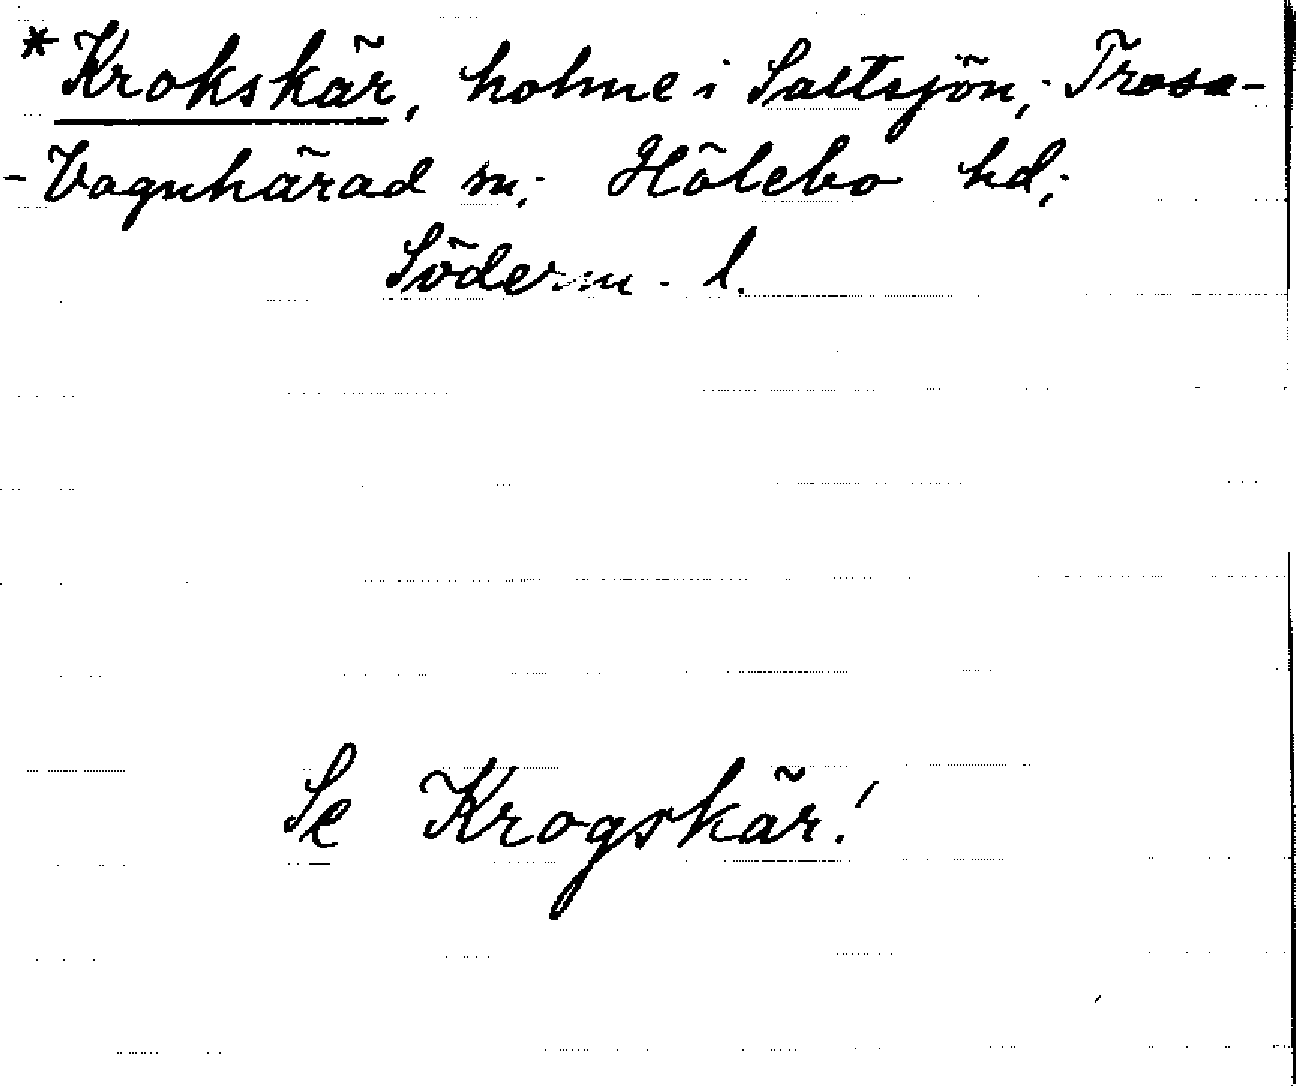 *Krokskär, holme i Saltsjön, Trosa-
-Vagnhärad sn; Hölebo hd;
Söderm. l.
Se Krogskär!